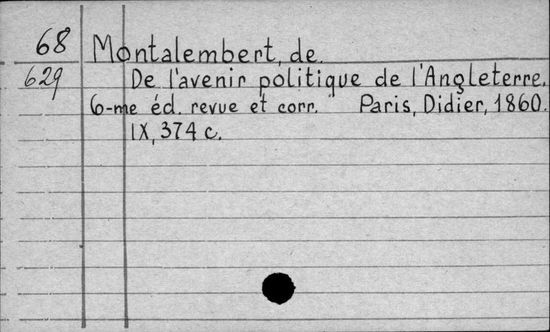 68 Montalembert, de.
629 De l'avenir politique de l'Angleterre.
6-me éd. revue et corr. Paris, Didier, 1860.
IX, 374 c.